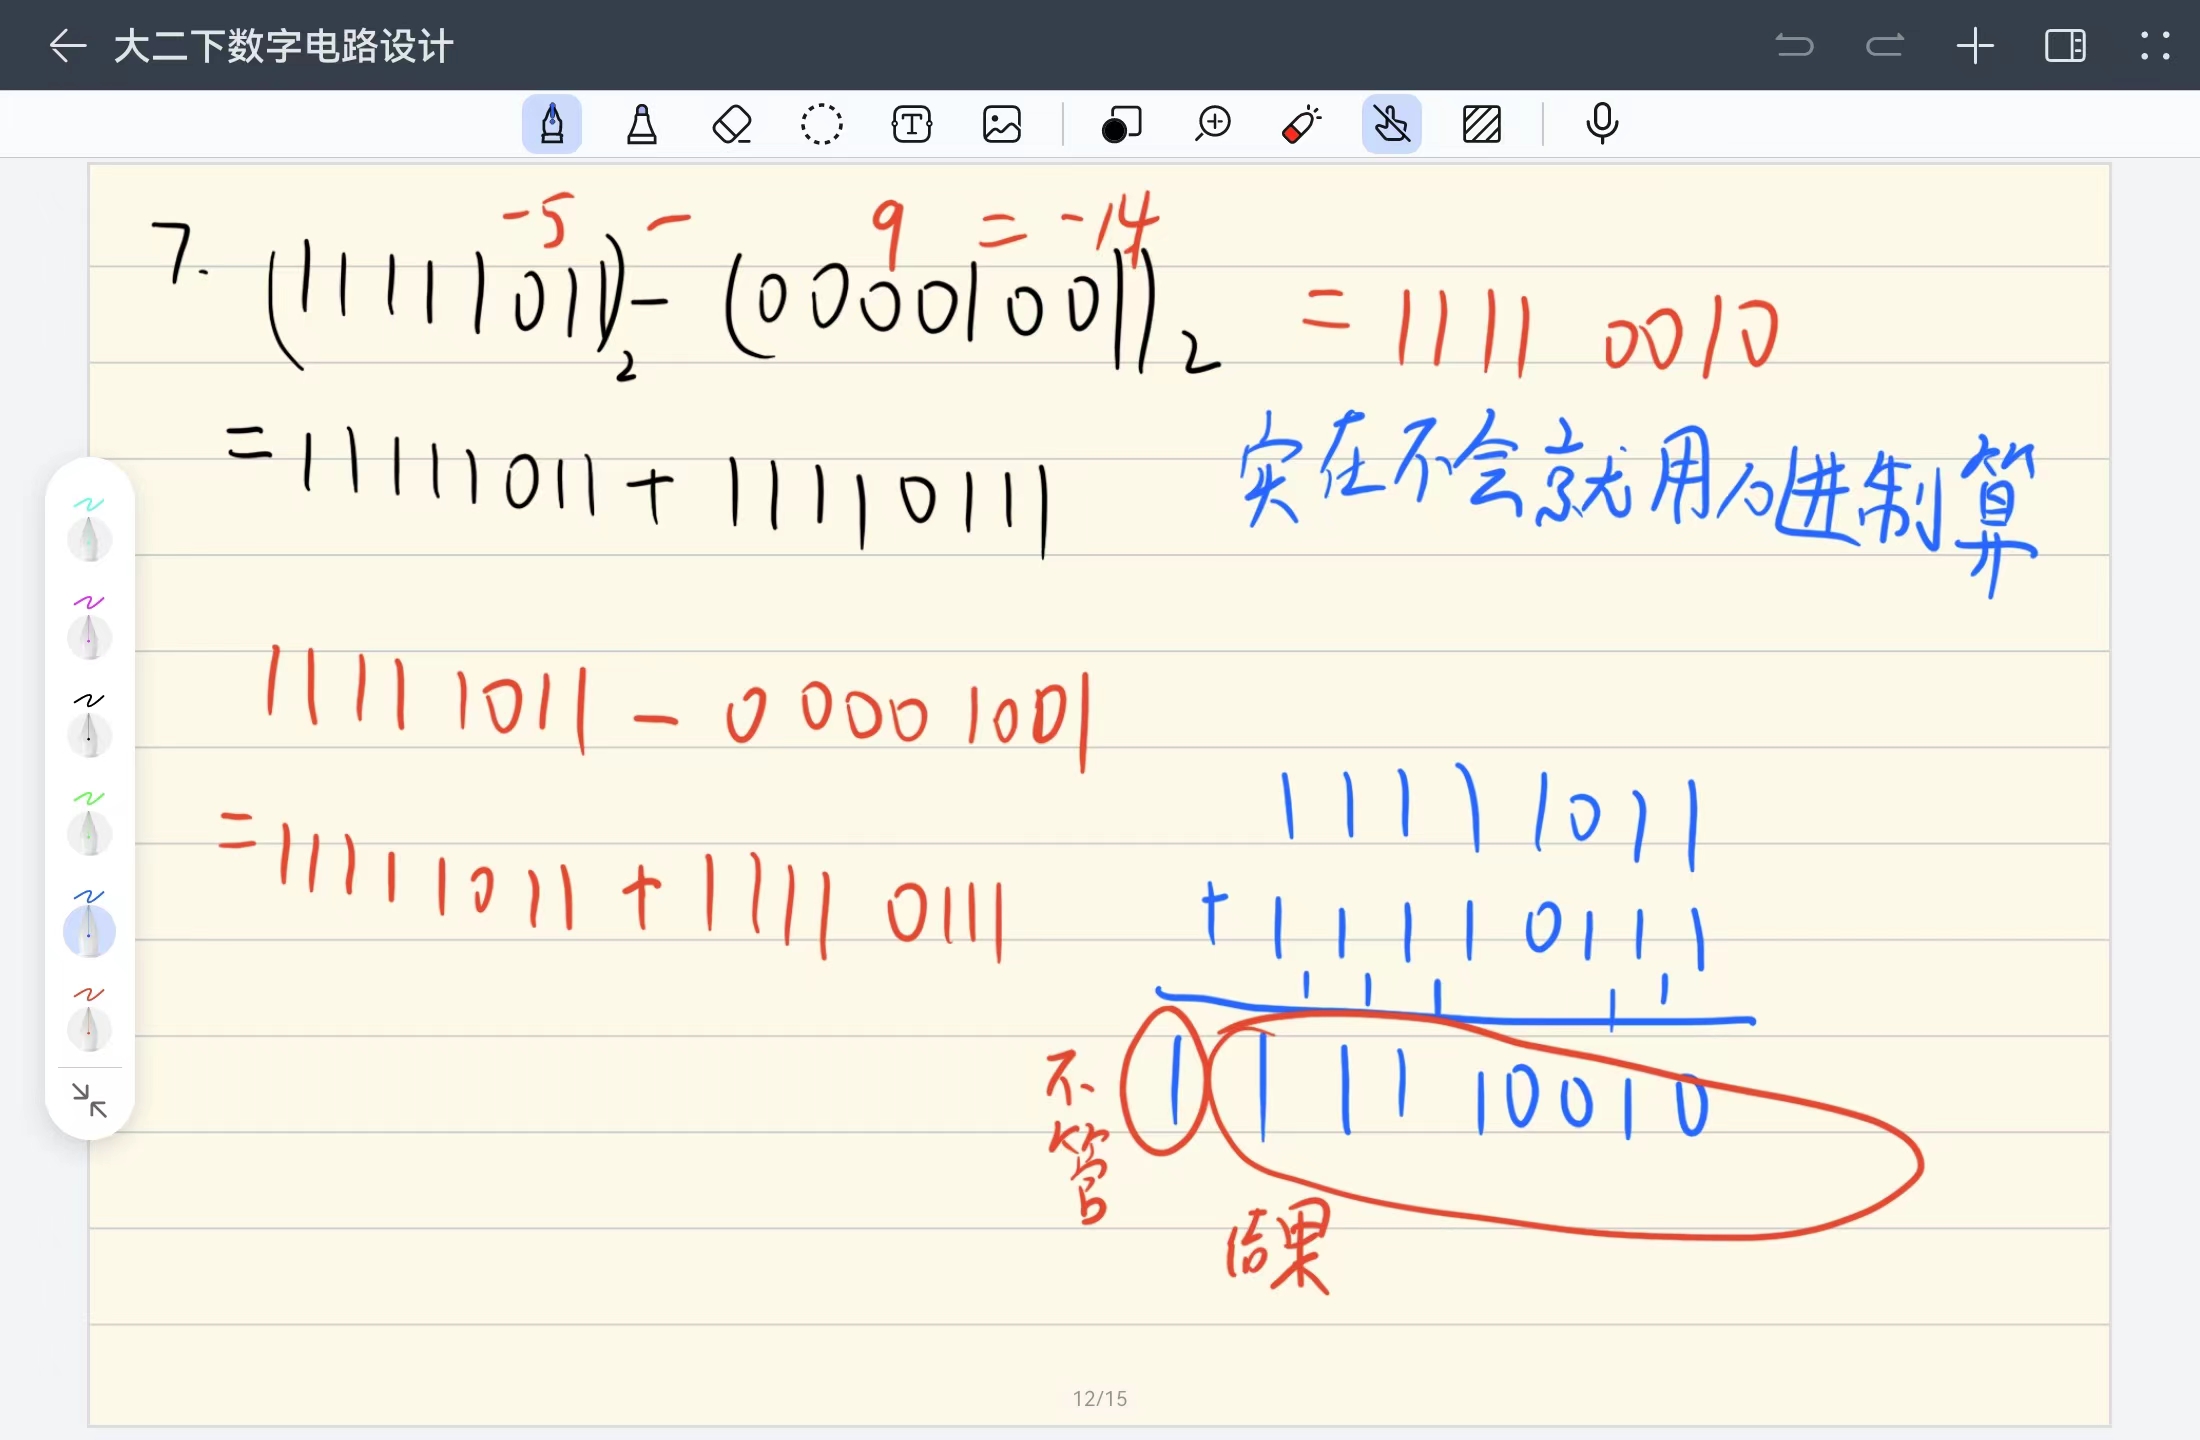 大二下数字电路设计
-5 - 9 = -14
7. (11111011)₂ - (00001001)₂ = 1111 0010
= 11111011 + 11110111
实在不会就用10进制算
1111 1011 - 0000 1001
= 11111011 + 1111 0111
11111011
+ 11110111
1 1 1 1 1
1 1 1 1 1 0 0 1 0
不管
结果
12/15